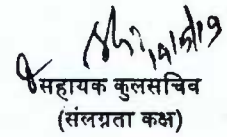 14/5/19
सहायक कुलसचिव
(संलग्नता कक्ष)